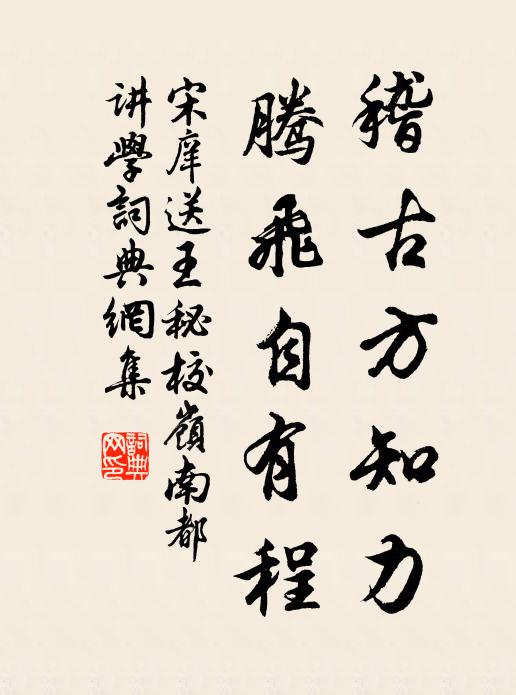 稽古方知力
騰飛自有程
宋庠送王秘校嶺南都
讲學詞典網集
詞典网印